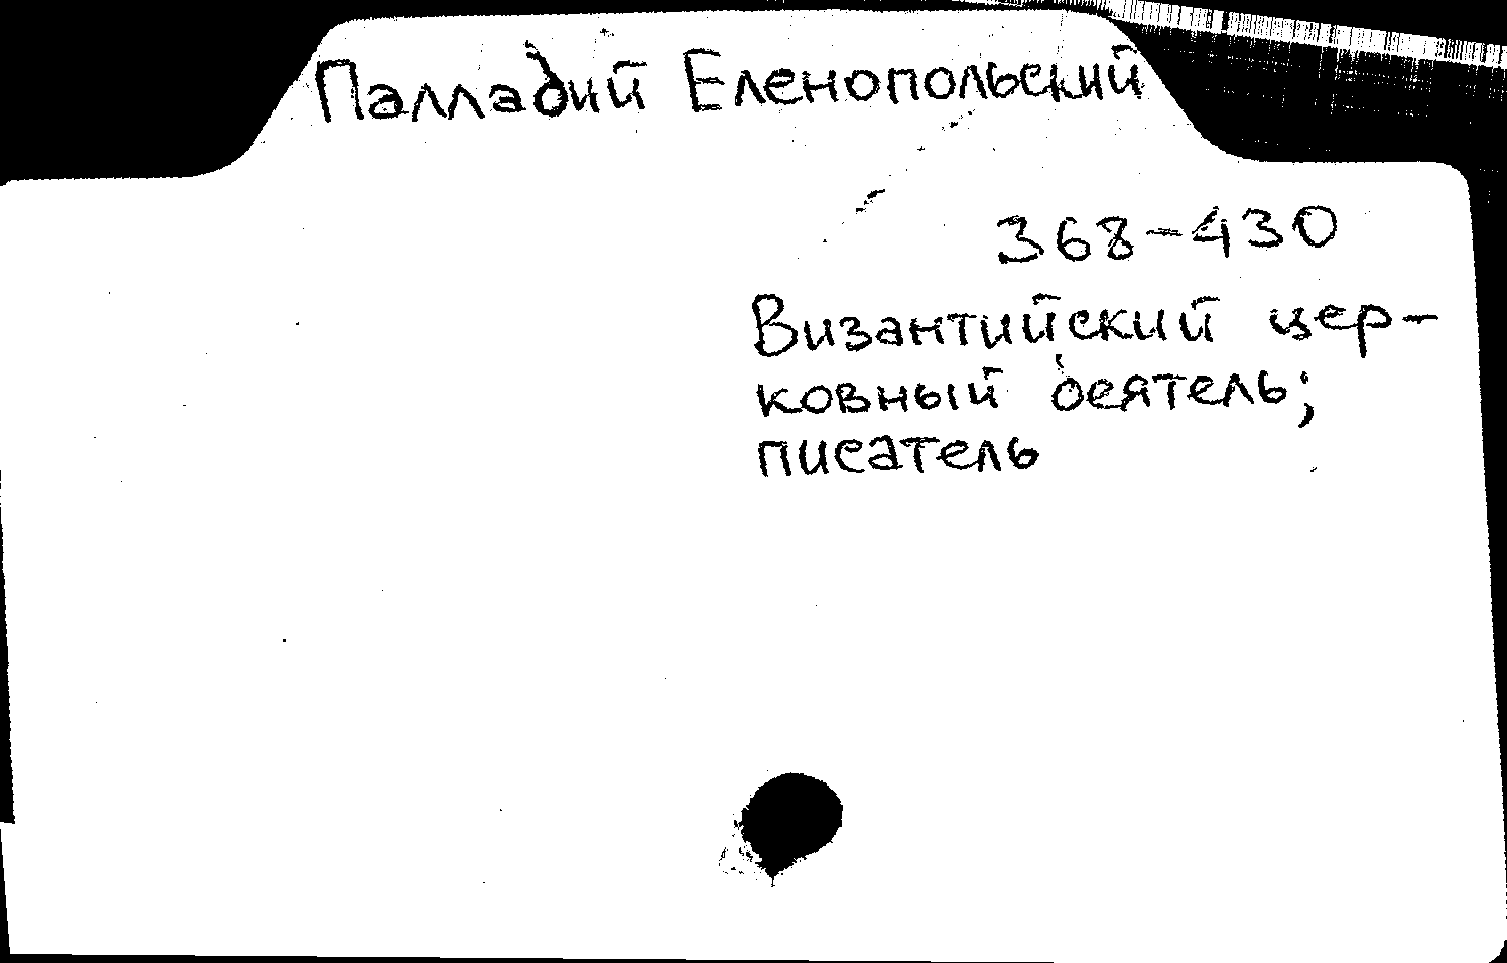 Палладий Еленопольский
368-430
Византийский цер-
ковный деятель;
писатель